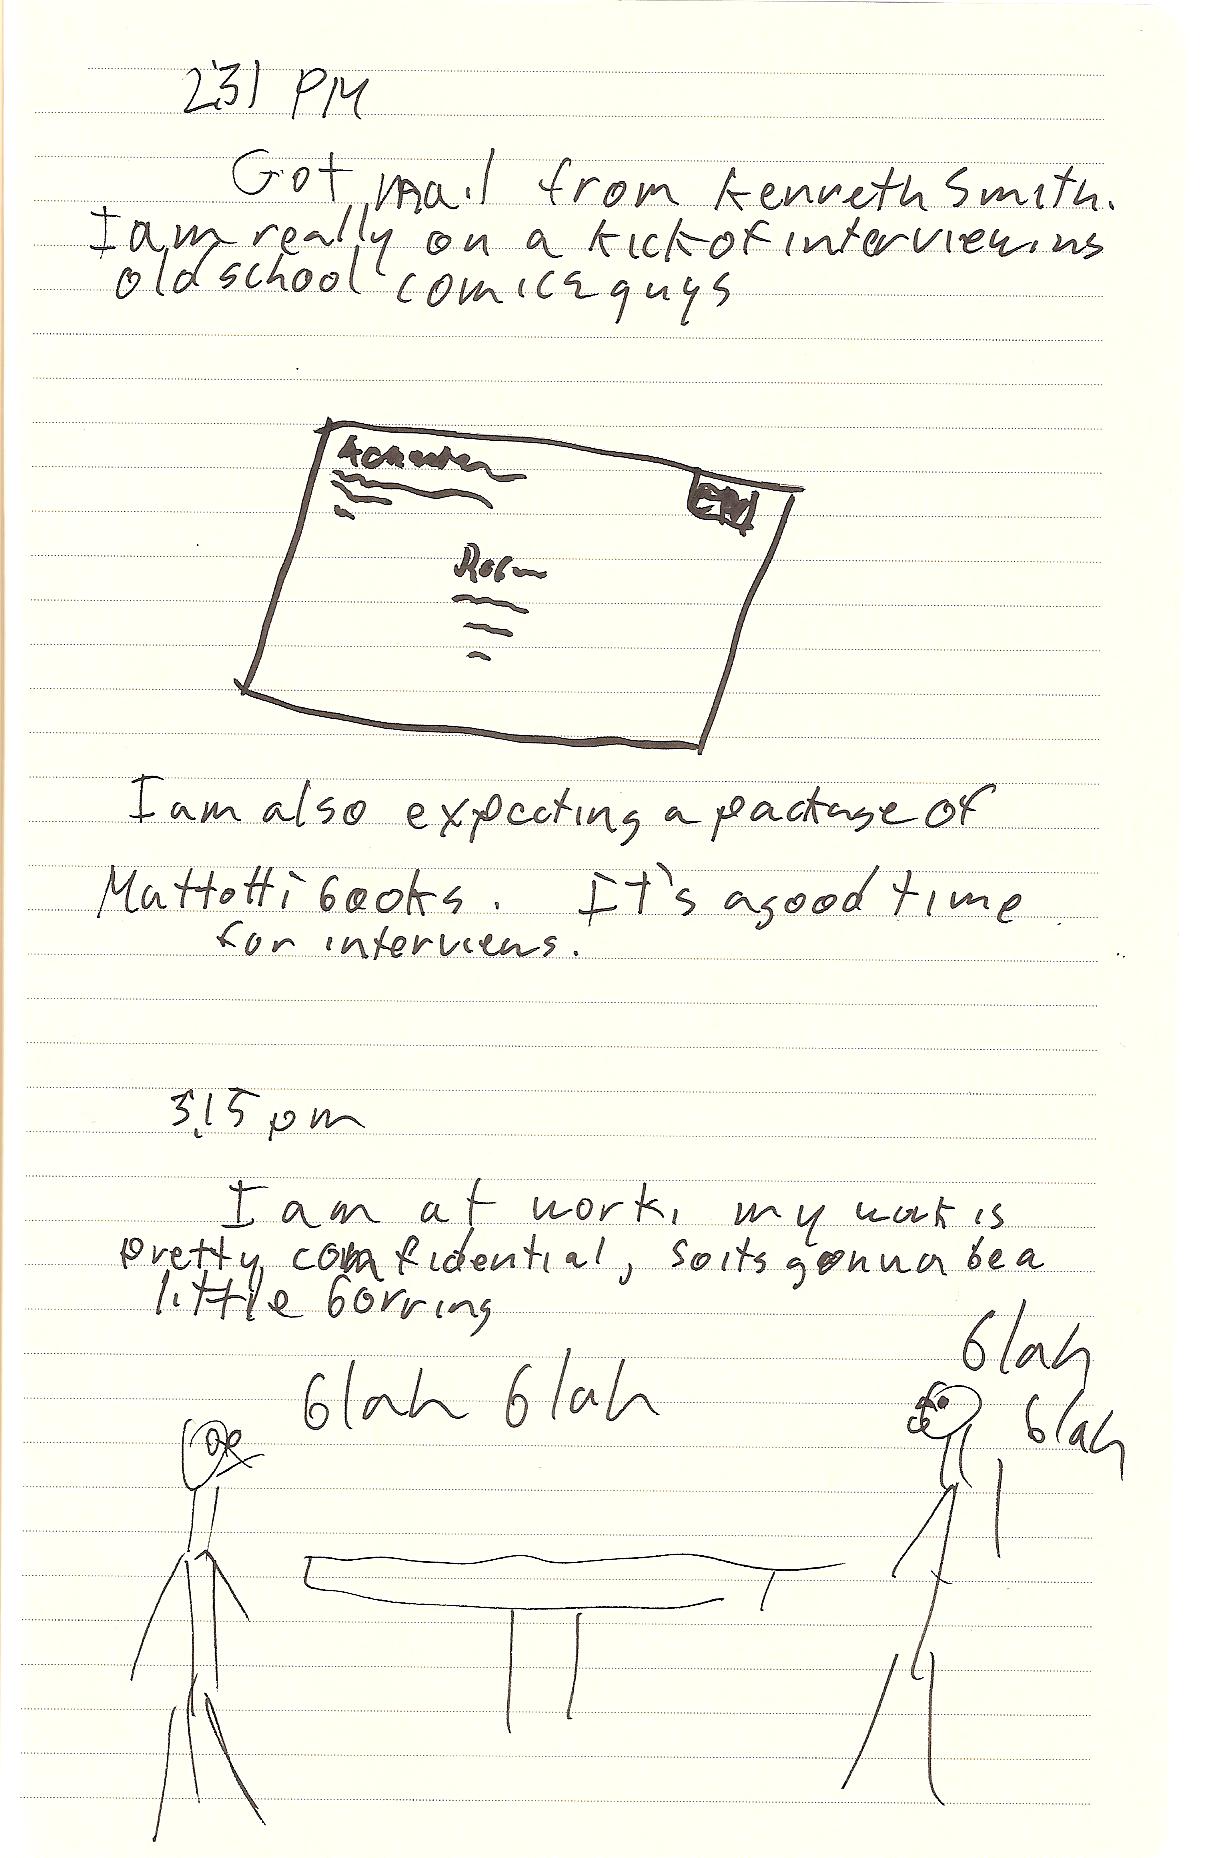 2:31 PM
Got mail from Kenneth Smith.
I am really on a kick of interviewing
old school comics guys
I am also expecting a package of
Mattotti books. It's a good time
for interviews.
3:15 pm
I am at work, my work is
pretty confidential, so its gonna be a
little borring
blah
blah blah
blah